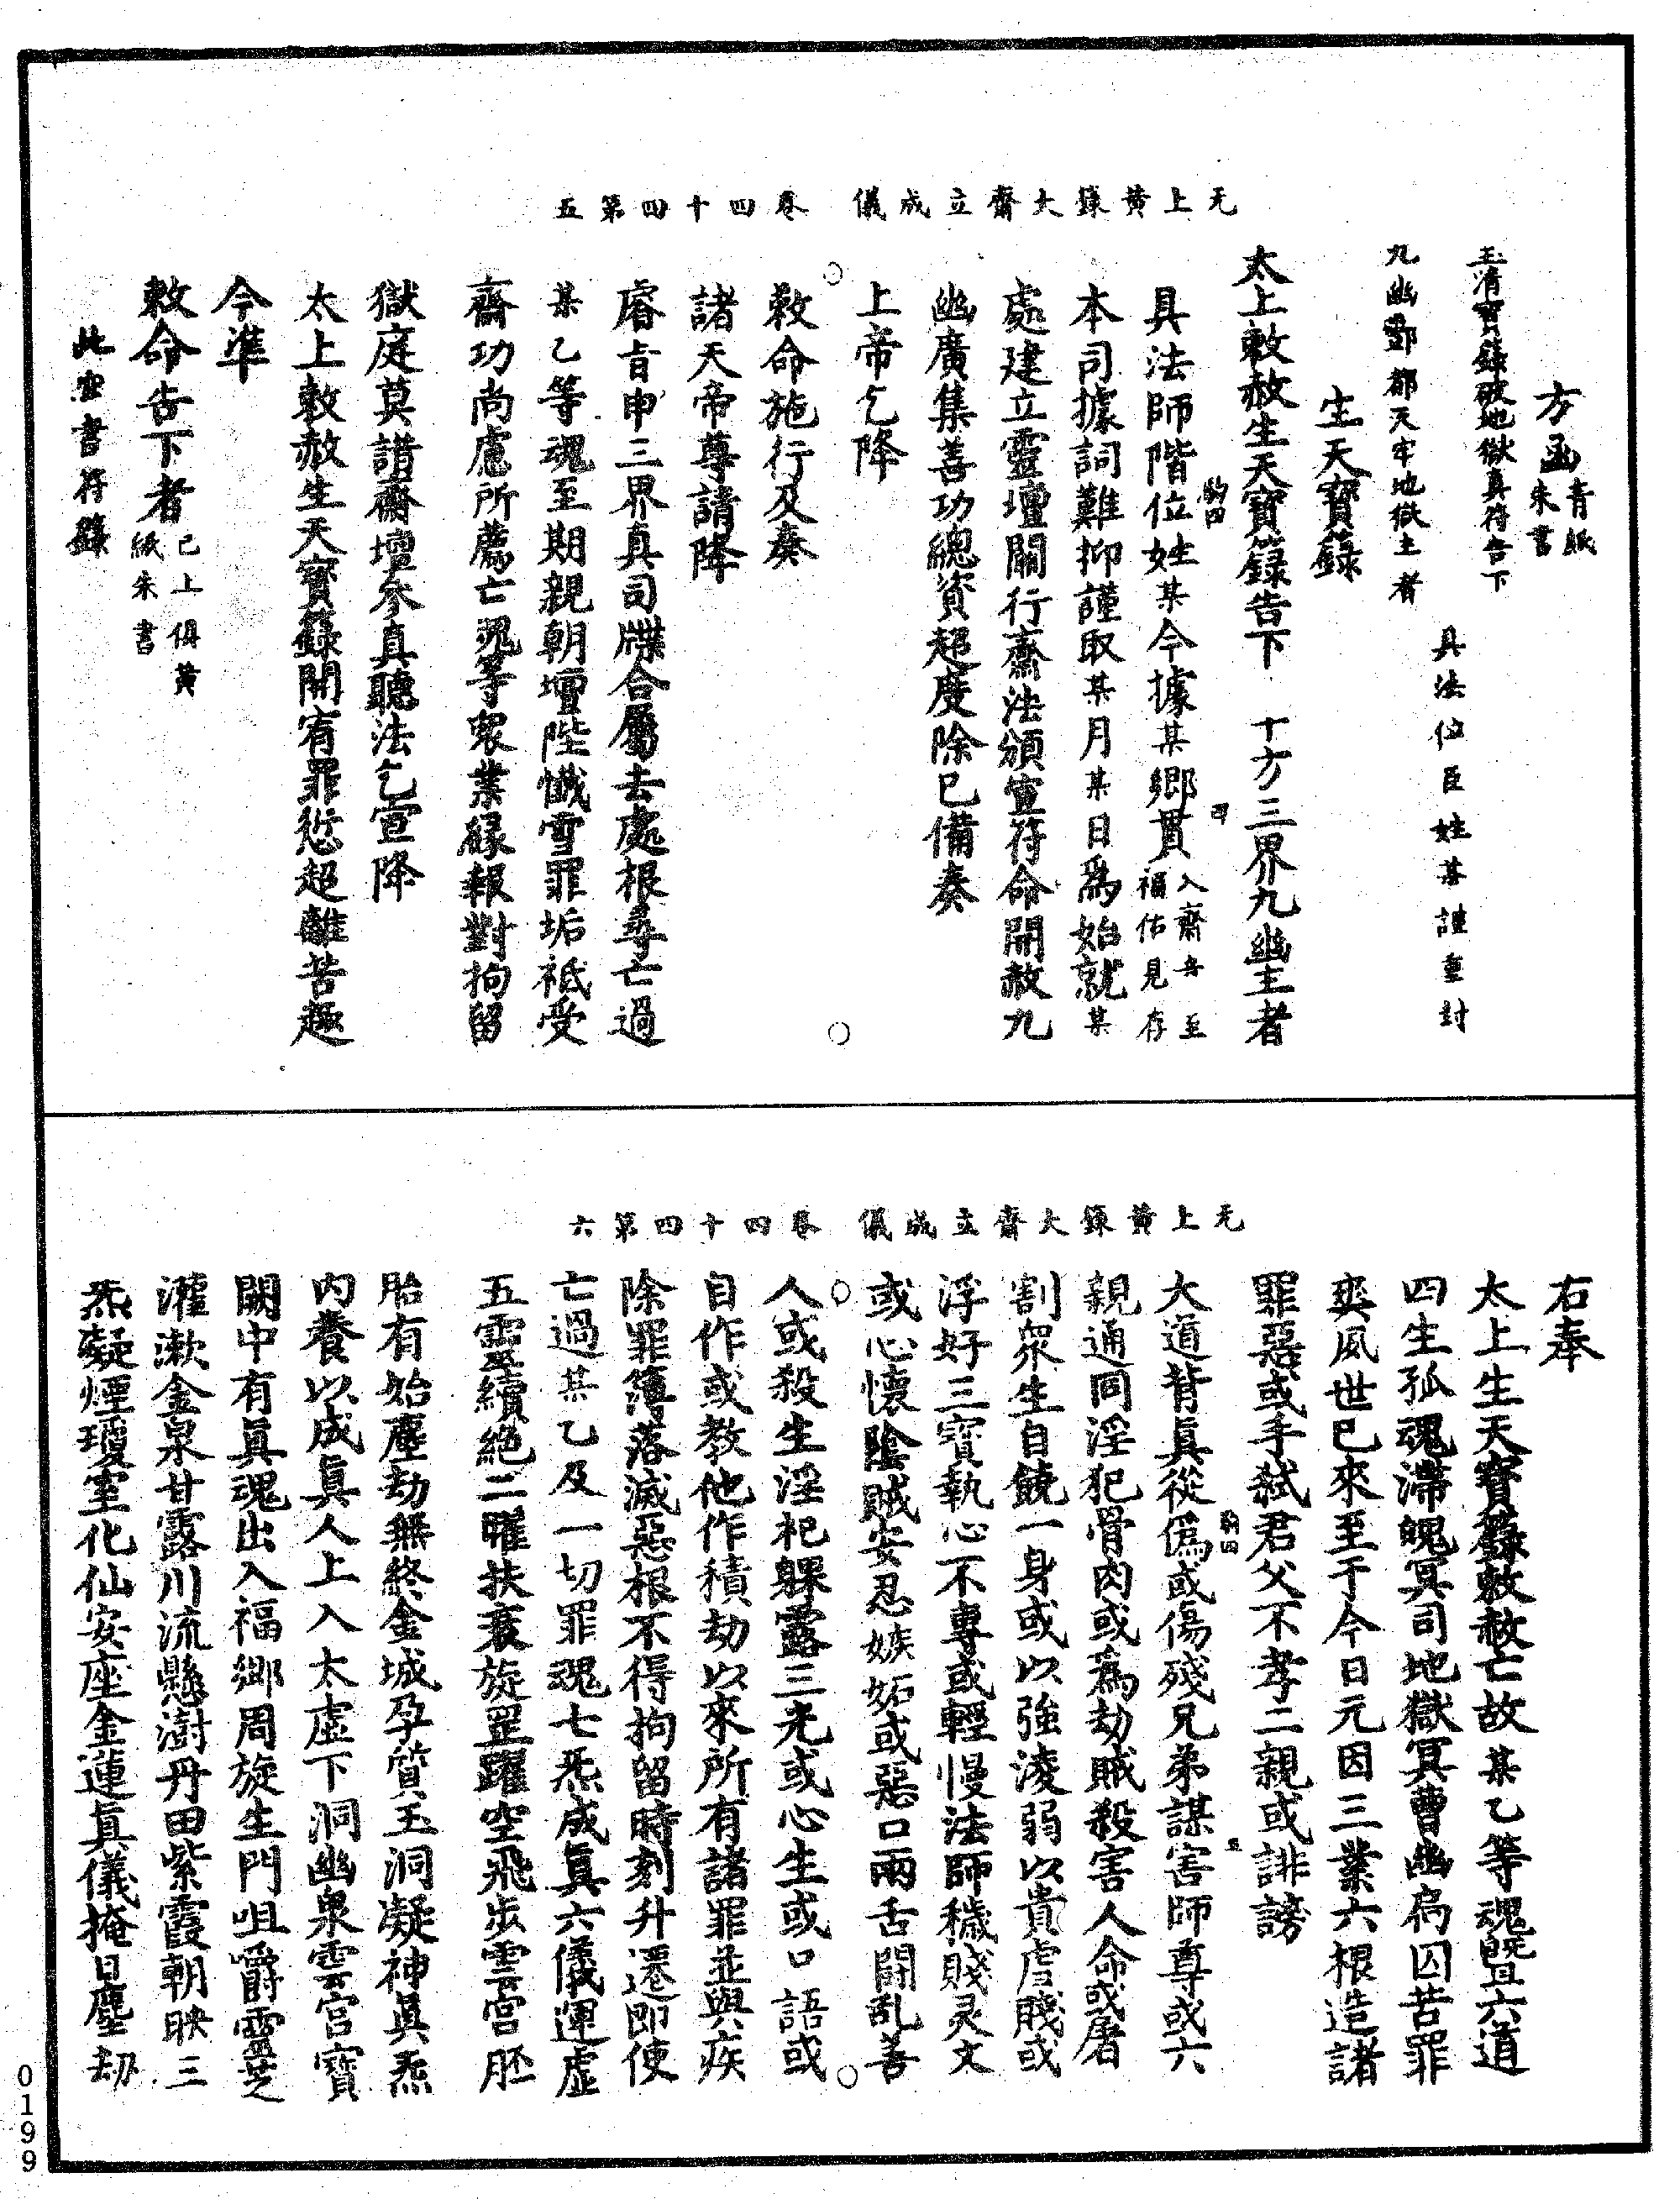 无上黃籙大齋立成儀　卷四十四第五
方函青紙朱書
玉清寶籙破地獄真符告下
具法位臣姓某謹重封
九幽酆都天牢地獄主者
生天寶籙
太上敕赦生天寶籙告下　十方三界九幽主者
具法師階位姓某今據某鄉貫入齋意至福佑見存
本司據詞難抑謹取某月某日爲始就某
處建立靈壇關行齋法頒宣符命開赦九
幽廣集善功總資超度除已備奏
上帝乞降
敕命施行及奏
諸天帝尊請降
睿旨申三界真司牒合屬去處根尋亡過
某乙等魂至期親朝壇陛懺雪罪垢祗受
齋功尚慮所薦亡𩲸等衆業緣報對拘留
獄庭莫詣齋壇參真聽法乞宣降
太上敕赦生天寶籙開宥罪愆超離苦趣
今準
敕命告下者已上俱黃紙朱書
此空書符籙
无上黃籙大齋立成儀　卷四十四第六
右奉
太上生天寶籙敕赦亡故某乙等魂曁六道
四生孤魂滯魄冥司地獄冥曹幽扃囚苦罪
爽夙世已來至于今日元因三業六根造諸
罪惡或手弒君父不孝二親或誹謗
大道背眞從僞或傷殘兄弟謀害師尊或六
親通同淫犯骨肉或爲劫賊殺害人命或屠
割衆生自饒一身或以強淩弱以貴虐賤或
浮好三寶執心不專或輕慢法師穢賤灵文
或心懷陰賊安忍嫉妬或惡口兩舌鬪乱善
人或殺生淫祀躶露三光或心生或口語或
自作或教他作積劫以來所有諸罪並與疾
除罪簿落滅惡根不得拘留時刻升遷即使
亡過某乙及一切罪魂七炁成眞六儀運虛
五靈續絕二曜扶衰旋罡躍空飛步雲宮胚
胎有始塵劫無終金城孕質玉洞凝神眞炁
內養以成眞人上入太虛下洞幽泉雲宮寶
闕中有眞魂出入福鄉周旋生門咀嚼靈芝
灌漱金泉甘露川流懸澍丹田紫霞朝映三
炁凝煙瓊室化仙安座金蓮眞儀掩日塵劫
0199